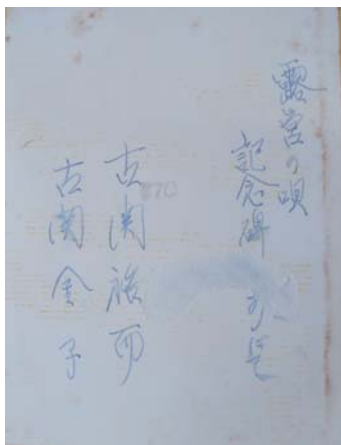 露営の唄
記念碑
古関裕而
古関金子